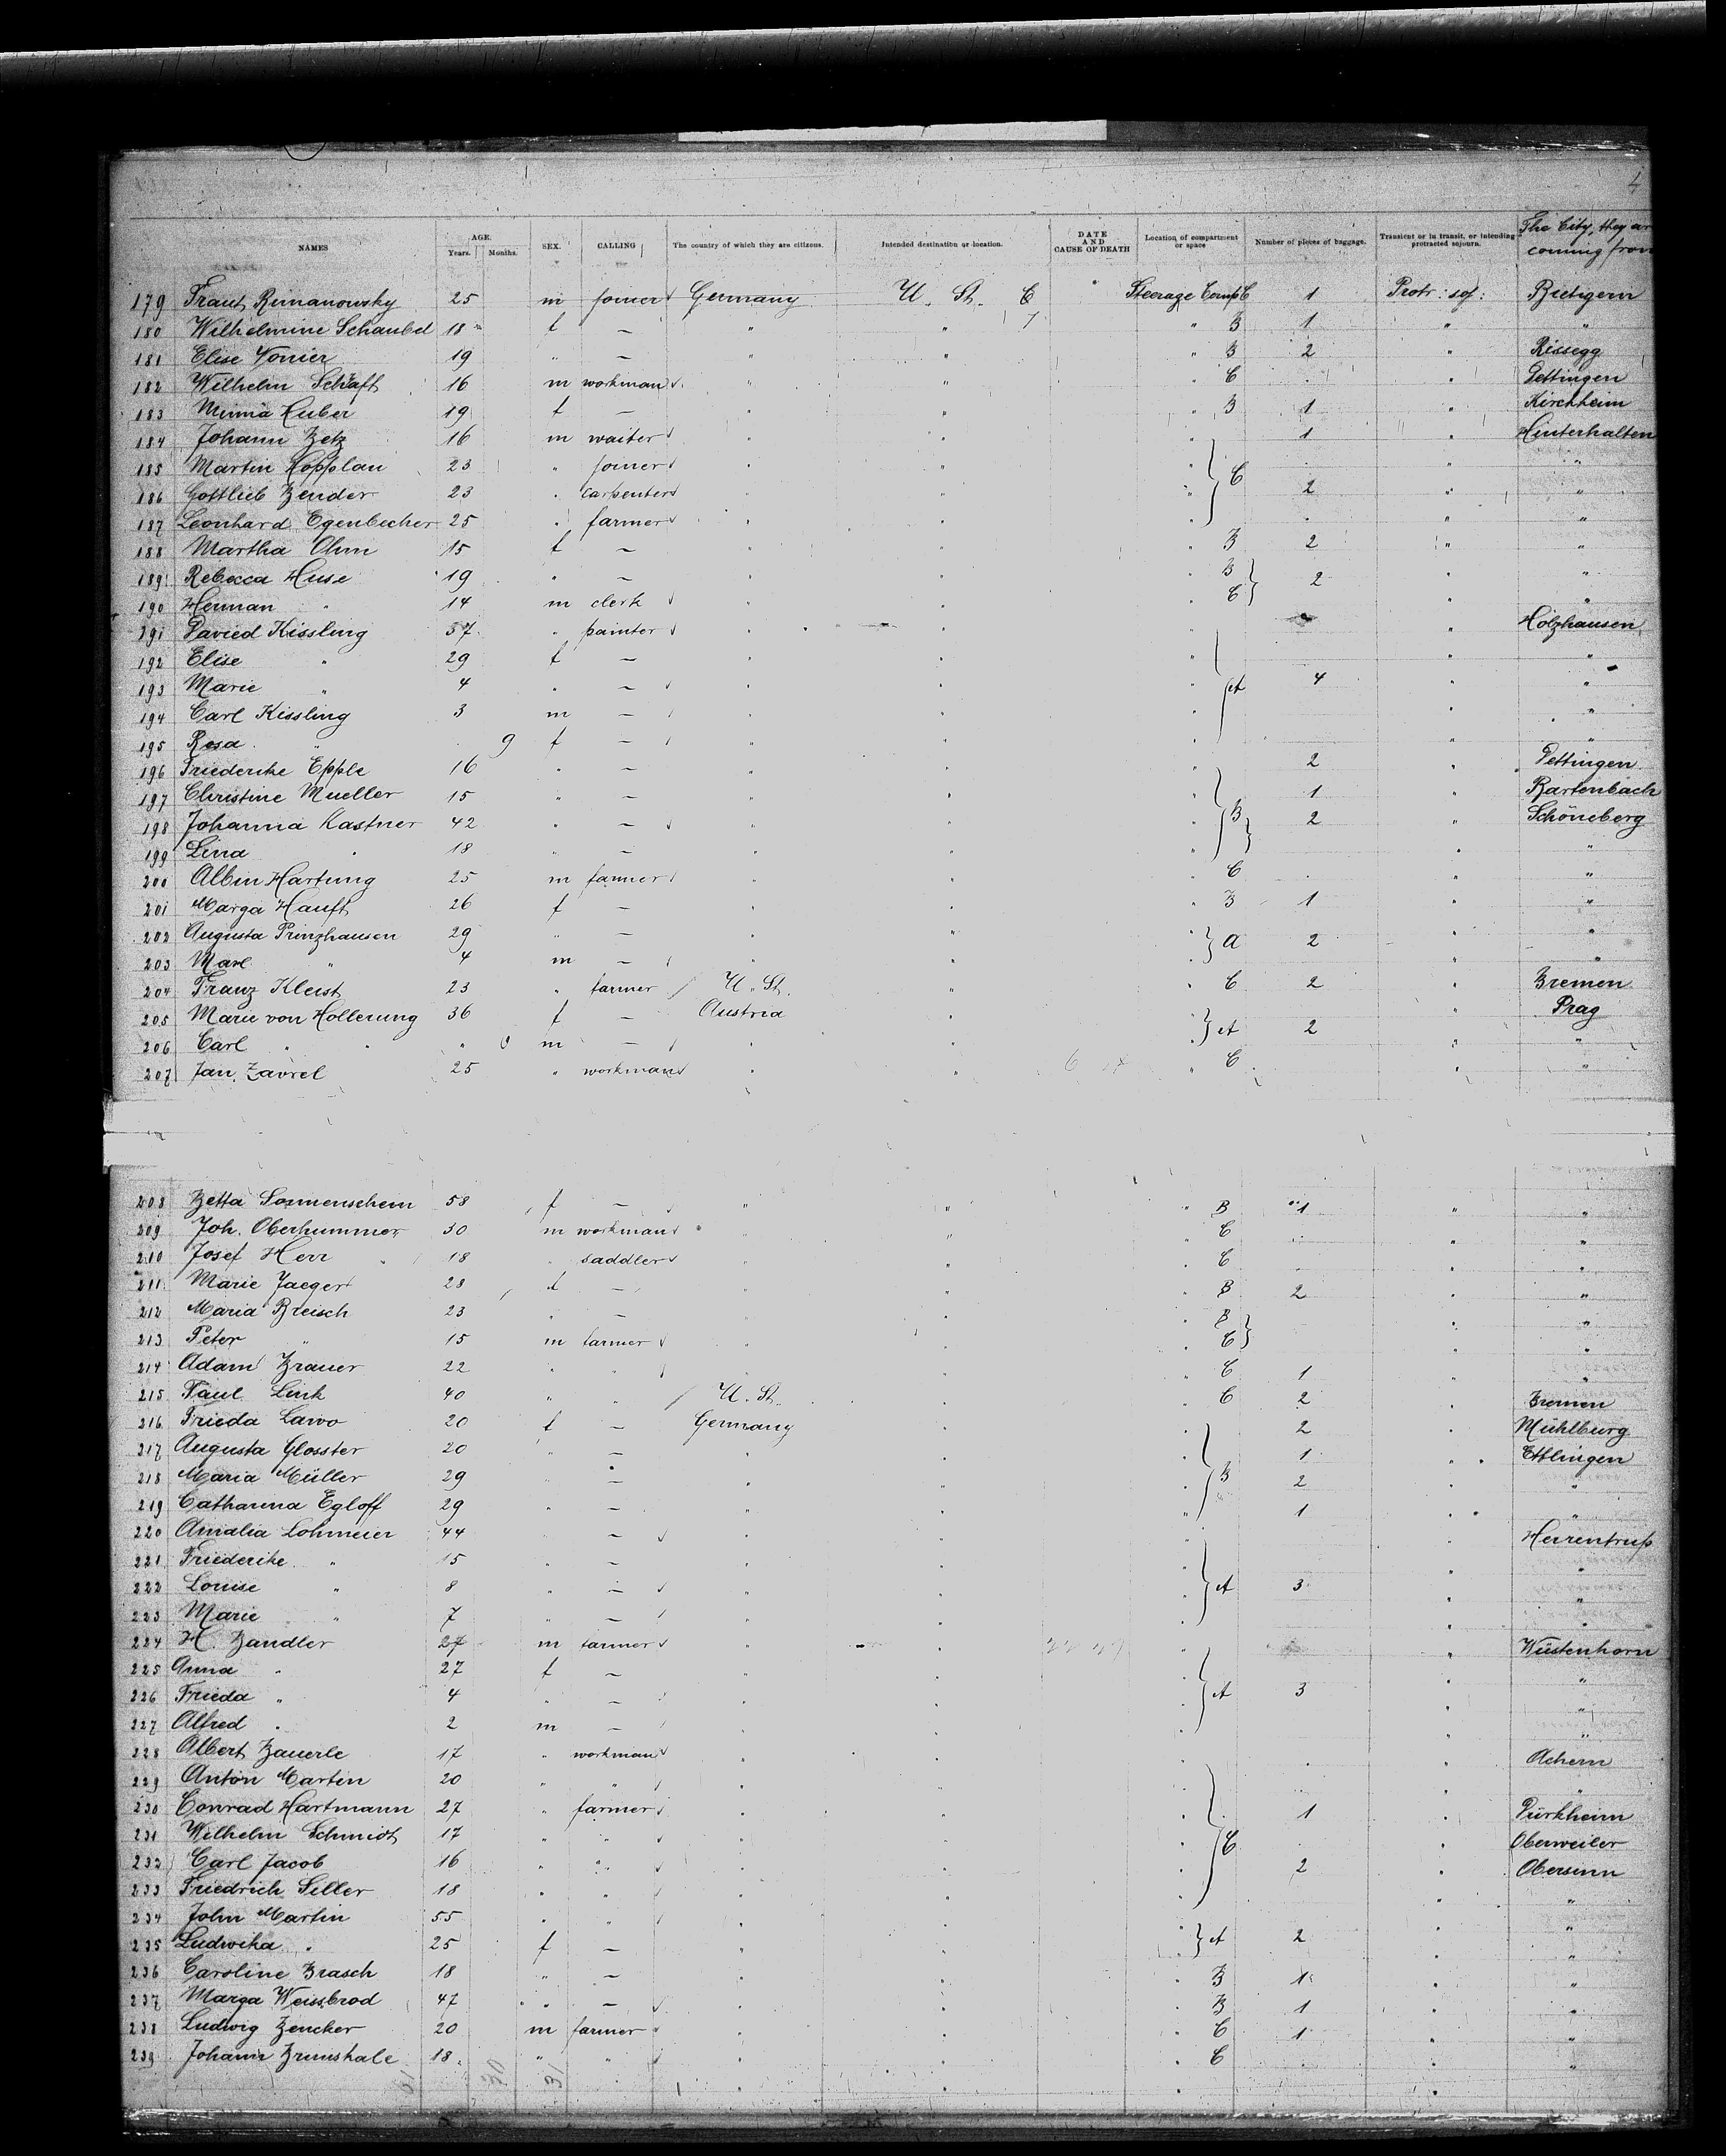 4
NAMES AGE. Years. Months. SEX. CALLING The country of which they are citizens. Intended destination or location. DATE AND CAUSE OF DEATH Location of compartment or space Number of pieces of baggage. Transient or in transit, or intending protracted sojourn. The City, they are coming from
179 Franz Rimanowsky 25 m joiner Germany U. St. Steerage Comp C 1 Protr: soj:
180 Wilhelmine Schaubel 18 f — " " " B 1 " "
181 Elise Vonier 19 " — " " " B 2 " Rissegg
182 Wilhelm Schaft 16 m workman " " " C . " Dettingen
183 Minna Huber 19 f — " " " B 1 " Kirchheim
184 Johann Betz 16 m waiter " " 1 " Hinterhalten
185 Martin Kopplan 23 " joiner " " " " "
186 Gottlieb Bender 23 " carpenter " " " C 2 " "
187 Leonhard Egenbecher 25 " farmer " " " " "
188 Martha Ohm 15 f — " " " B 2 " "
189 Rebecca Huse 19 " — " " " B 2 " "
190 Herman " 14 m clerk " " " C " "
191 Davied Kissling 37 " painter " " " " Holzhausen
192 Elise " 29 f — " " " " "
193 Marie " 4 " — " " " A 4 " "
194 Carl Kissling 3 m — " " " " "
195 Rosa " 9 f — " " " " "
196 Friederike Epple 16 " — " " 2 " Dettingen
197 Christine Mueller 15 " — " " " 1 " Bartenbach
198 Johanna Kastner 42 " — " " " B 2 " Schöneberg
199 Lina " 18 " — " " " " "
200 Albin Hartung 25 m farmer " " " C . " "
201 Marga Hauft 26 f — " " " B 1 " "
202 Augusta Prinzhausen 29 " — " " " A 2 " "
203 Marl " 4 m — " " " " "
204 Franz Kleist 23 " farmer U. St. " " C 2 " Bremen
205 Marie von Hollerung 36 f — Austria " " A 2 " Prag
206 Carl " " " m — " " " " "
207 Jan Zavrel 25 " workman " " " C . " "
208 Betta Sonnenschein 58 f — " " " B 1 " "
209 Joh. Oberhummer 30 m workman " " " C . " "
210 Josef Herr 18 " saddler " " " C . " "
211 Marie Jaeger 28 f — " " " B 2 " "
212 Maria Breisch 23 " — " " " B " "
213 Peter " 15 m farmer " " " C " "
214 Adam Brauer 22 " " " " " C 1 " "
215 Paul Link 40 " " U. St. " " C 2 " Bremen
216 Frieda Lawo 20 f — Germany " " 2 " Mühlburg
217 Augusta Glosster 20 " — " " " 1 " Ettlingen
218 Maria Müller 29 " — " " " B 2 " "
219 Catharina Egloff 29 " — " " " 1 " "
220 Amalia Lohmeier 44 " — " " " " Herrentrup
221 Friederike " 15 " — " " " " "
222 Louise " 8 " — " " " A 3 " "
223 Marie " 7 " — " " " " "
224 H. Bandler 27 m farmer " " " " Wüstenhorn
225 Anna " 27 f — " " " " "
226 Frieda " 4 " — " " " A 3 " "
227 Alfred " 2 m — " " " " "
228 Albert Bauerle 17 " workman " " " . " Achern
229 Anton Martin 20 " " " " " . " "
230 Conrad Hartmann 27 " farmer " " " 1 " Dürkheim
231 Wilhelm Schmidt 17 " " " " " C . " Oberweiler
232 Carl Jacob 16 " " " " " 2 " Obersinn
233 Friedrich Seller 18 " " " " " " "
234 John Martin 55 " " " " " " "
235 Ludwika " 25 f — " " " A 2 " "
236 Caroline Brasch 18 " — " " " B 1 " "
237 Marga Weissbrod 47 " — " " " B 1 " "
238 Ludwig Bencker 20 m farmer " " " C 1 " "
239 Johann Brunskale 18 " " " " " C . " "